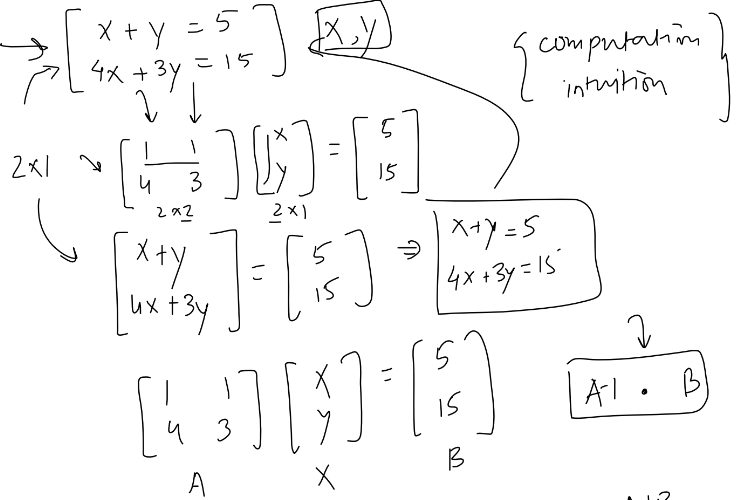 x + y = 5
4x + 3y = 15
x, y
computation
intuition
2x1
1 1
4 3
2x2
x
y
2x1
=
5
15
x+y
4x+3y
=
5
15
⇒
x+y=5
4x+3y=15
1 1
4 3
A
x
y
X
=
5
15
B
A-1 . B